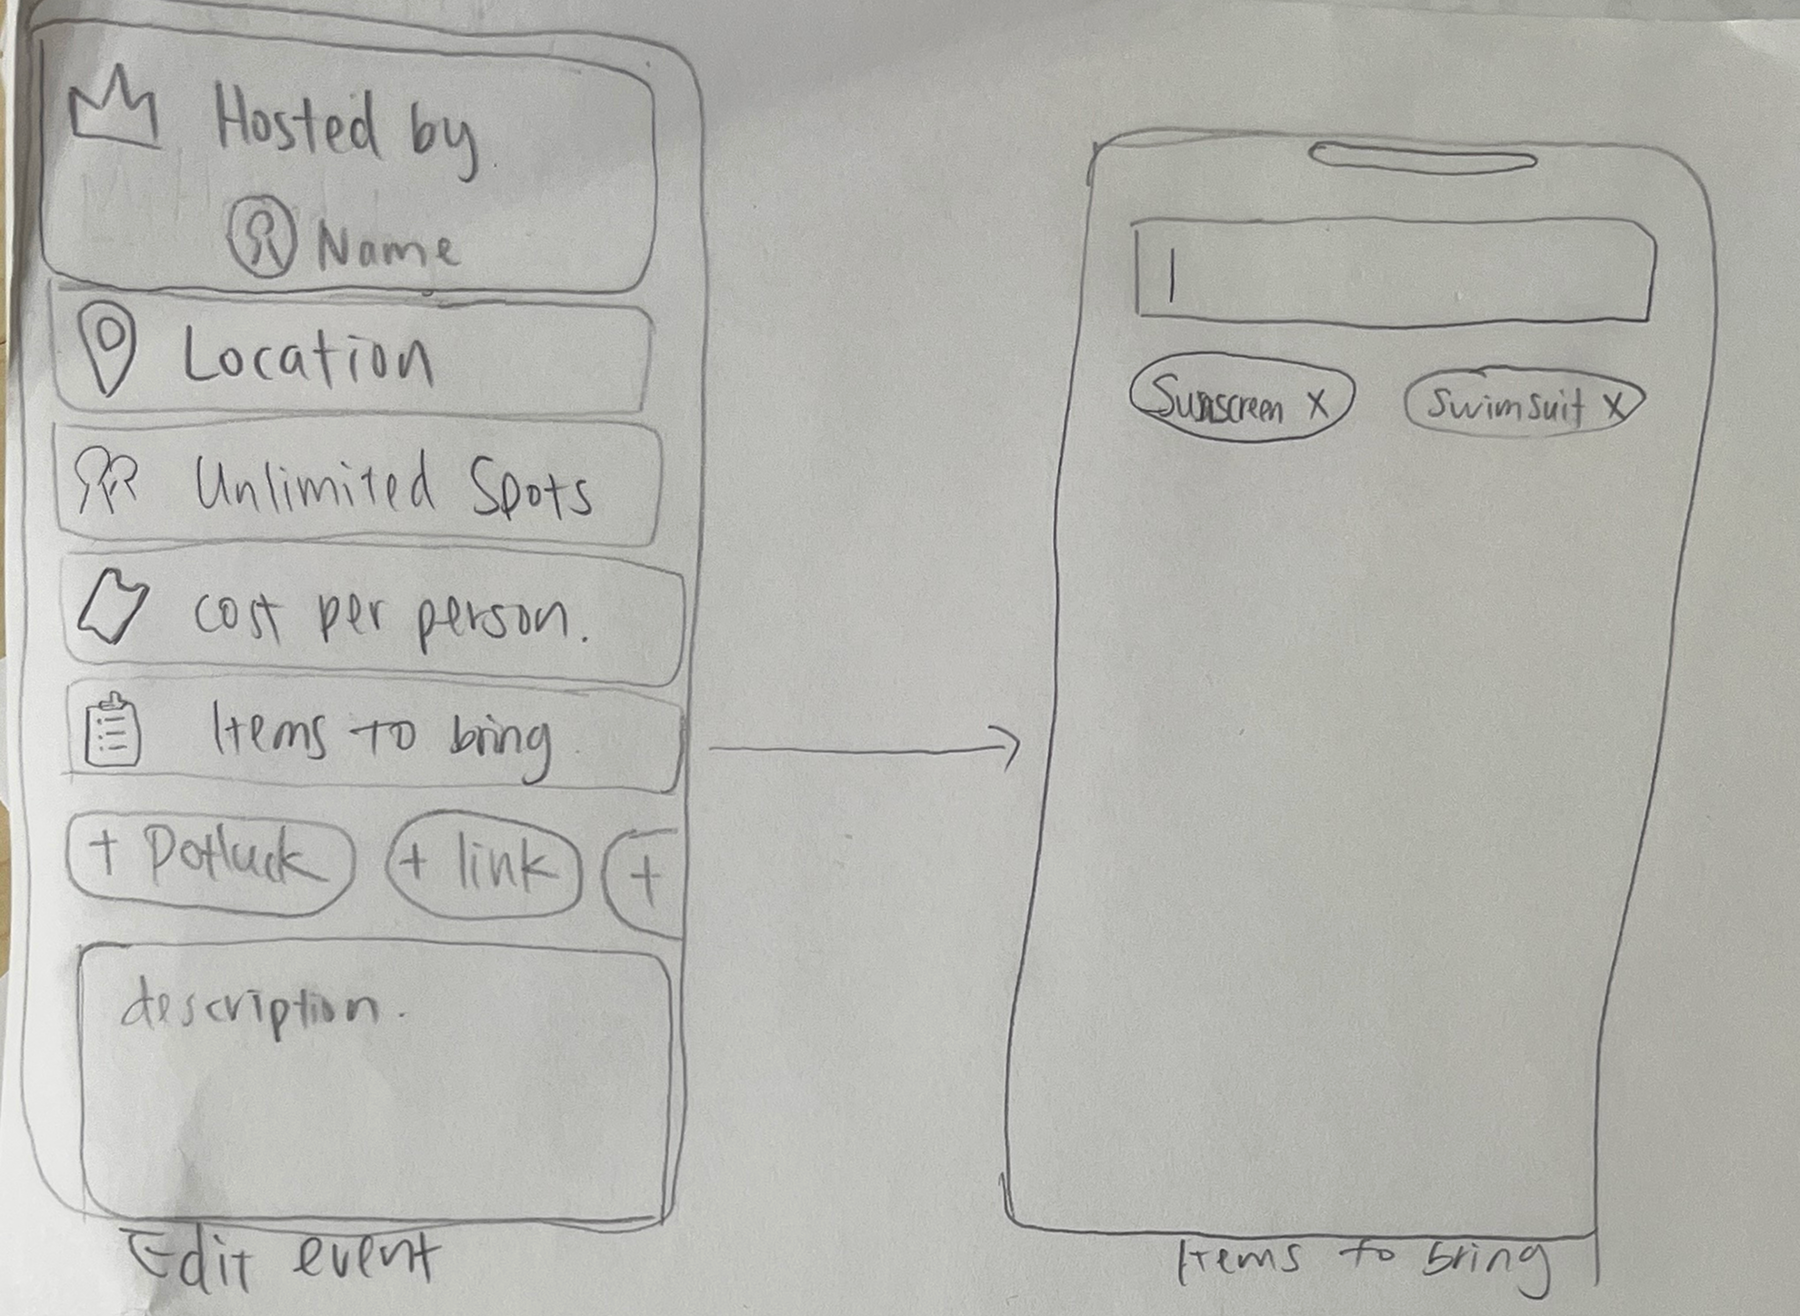 Hosted by
Name
Location
Unlimited Spots
cost per person.
Items to bring
+ Potluck + link +
description.
Edit event
Sunscreen X Swimsuit X
Items to bring